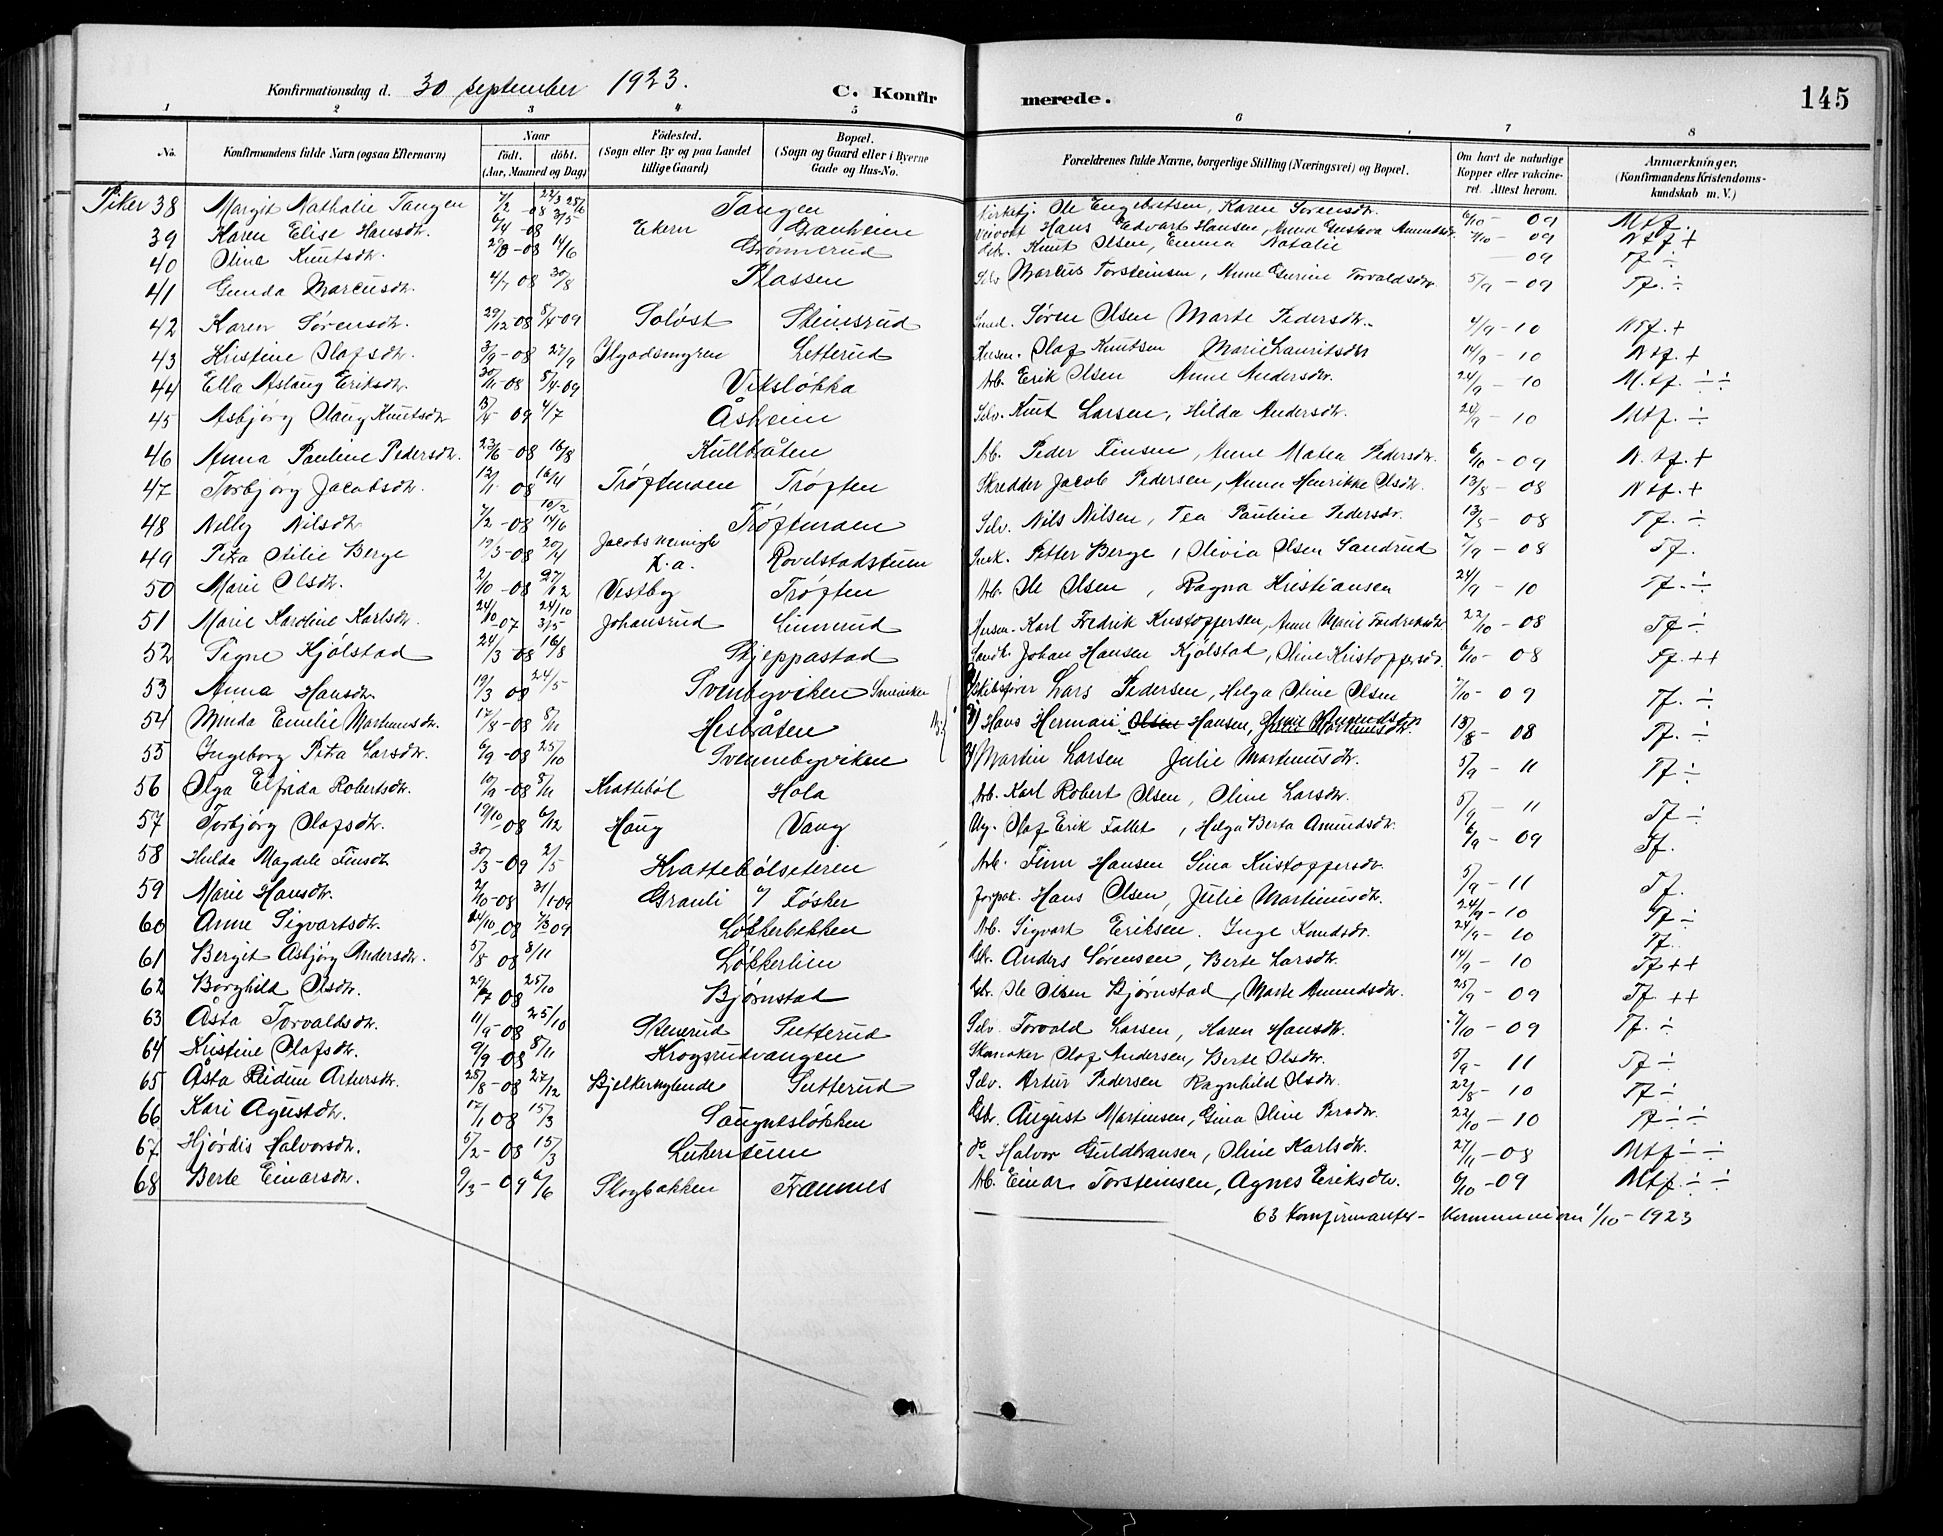 Konfirmationsdag d. 30 september 1923. C. Konfir merede. 145
1 2 3 4 5 6 7 8
No. Konfirmandens fulde Navn (ogsaa Efternavn) Naar født. døbt. (Aar, Maaned og Dag) Fødested. (Sogn eller By og paa Landet tillige Gaard) Bopæl. (Sogn og Gaard eller i Byerne Gade og Hus-No. Forældrenes fulde Navne, borgerlige Stilling (Næringsvei) og Bopæl. Om havt de naturlige Kopper eller vakcineret. Attest herom. Anmærkninger. (Konfirmandens Kristendomskundskab m. V.)
Piker 38 Margit Nathalie Tangen 7/2 - 08 Tangen Ole Engebretsen, Karen Sørensdtr. 6/10 - 09 Mtf.
39 Karen Elise Hansdtr. 6/4 - 08 3/5 Ekern Hans Edvart Hansen, Anna Gustava Amundsdtr. 7/10 - 09 Ntf +
40 Oline Knutsdtr. 29/3 - 08 14/6 Grønnerud Knut Olsen, Emma Natalie - 09 Tf ÷
41 Gunda Marcusdtr. 4/7 08 30/8 Plassen Selv. Marcus Torsteinsen, Anne Gurine Torvaldsdtr. 5/9 - 09 Tf. ÷
42 Karen Sørensdtr. 29/12 - 08 8/4 - 09 Soløst Steinsrud Smed. Søren Olsen Marte Pedersdtr. 4/9 - 10 Ntf. +
43 Kristine Olafsdtr. 3/9 - 08 27/9 Ilgodsmyren Letterud Olaf Knutsen Marie Lauritsdtr 14/9 - 10 Ntf. +
44 Ella Aslaug Eriksdtr. 30/11 - 08 8/4 - 09 Viksløkka Arb. Erik Olsen Anne Andersdtr. 24/9 - 10 M.tf. ÷ ÷
45 Asbjørg Olaug Knutsdtr 09 4/7 Åsheim Selv. Knut Larsen, Hilda Andersdtr. 24/9 - 10 Mtf. ÷
46 Anna Pauline Pedersdtr. 23/6 - 08 16/8 Kullbråten Arb. Peder Finsen, Anne Matea Pedersdtr. 6/10 - 09 N.tf. +
47 Torbjørg Jacobsdtr. 12/1 08 16/4 Trøftmoen Trøften Skredder Jacob Pedersen, Anna Henrikke Olsdtr. 13/8 - 08 Ntf. +
48 Nelly Nilsdtr 7/2 - 08 14/6 Trøftmoen Selv. Nils Nilsen, Tea Pauline Pedersdtr. 13/8 - 08 Tf. ÷
49 Petra Otilie Berge 19/3 - 08 20/4 K.a. Rovelstadstuen Petter Berge, Olivia Olsen Sandrud 7/9 - 08 Tf.
50 Marie Olsdtr. 2/10 - 08 27/12 Vestby Trøften Arb. Ole Olsen, Ragna Kristiansen 24/9 - 10 Tf. ÷
51 Marie Karoline Karlsdtr. 24/10 - 07 Johansrud Linnerud Karl Fredrik Kristoffersen, Anne Marie Fredriksdtr 22/10 - 08 Tf ÷
52 Signe Kjølstad 24/3 - 08 16/8 Skjeppastad Johan Hansen Kjølstad, Oline Kristoffersdtr. 6/10 - 08 Tf. ++
53 Anna Hansdtr. 19/3 08 24/5 Svenbyviken Lars Pedersen, Helga Oline Olsen 7/10 - 09 Tf. ÷
54 Minda Emelie Martinusdtr. 17/8 - 08 8/11 Hesbråten Hans Herman Olsen Hansen, Anne Amundsdtr. 13/8 - 08 Tf. ÷
55 Ingeborg Petra Larsdtr. 6/9 - 08 25/10 Svennebyviken Martin Larsen Julie Martinusdtr. 5/9 - 11 Tf ÷
56 Olga Elfrida Robertsdtr. 10/9 - 08 8/11 Krattebøl Hola Arb. Karl Robert Olsen, Oline Larsdtr. 5/9 - 11 Tf ÷
57 Torbjørg Olafsdtr. 19/10 - 08 6/12 Haug Vang Olaf Erik Fallet, Helga Berta Amundsdtr. 6/9 - 09 Tf.
58 Hulda Magdele Finsdtr 30/3 - 09 2/5 Krattebølseteren Arb. Finn Hansen Sina Kristoffersdtr. 5/9 - 11 Tf.
59 Marie Hansdtr. 2/10 - 08 31/1 - 09 Granli Føsker Hans Olsen, Julie Martinusdtr. 24/9 - 10 Tf ÷
60 Anne Sigvartsdtr. 24/10 - 08 7/3 09 Løkkerbakken Arb. Sigvart Eriksen. Inge Knudsdtr. 24/9 - 10 Tf.
61 Bergit Asbjørg Andersdtr. 5/8 08 8/11 Løkkerlien Anders Sørensen, Berte Larsdtr. 14/9 - 10 Tf ++
62 Borghild Olsdtr. 29/7 08 25/10 Bjørnstad Ole Olsen Bjørnstad, Marte Amundsdtr. 25/9 - 09 Tf ++
63 Åsta Torvaldsdtr. 11/9 - 08 25/10 Stenerud Sutterud Selv. Torvald Larsen, Karen Hansdtr. 7/10 - 09 Tf. ÷
64 Kristine Olafsdtr. 9/9 - 08 8/11 Krogsrudvangen Skomaker Olaf Andersen, Berte Olsdtr. 5/9 - 11 Tf ÷
65 Åsta Reidun Artursdtr. 25/8 - 08 27/12 Bjelkernylende Sutterud Selv. Artur Pedersen Ragnhild Olsdtr. 22/8 - 10 Tf ÷
66 Kari Agustdtr. 12/1 08 15/3 Saugnesløkken August Martinsen, Gina Oline Persdtr. 22/10 - 10 Tf ÷ ÷
67 Hjørdis Halvorsdtr. 5/2 - 08 15/3 Luterstuen do Halvor Guldbransen, Oline Karlsdtr. 27/11 - 08 Mtf ÷ ÷
68 Berte Einarsdtr. 9/3 - 09 6/6 Skogbakken Framnes Arb. Einar Torsteinsen, Agnes Eriksdtr. 6/10 - 09 Mtf. ÷ ÷
63 Konfirmanter - Kommunion 1/10 - 1923